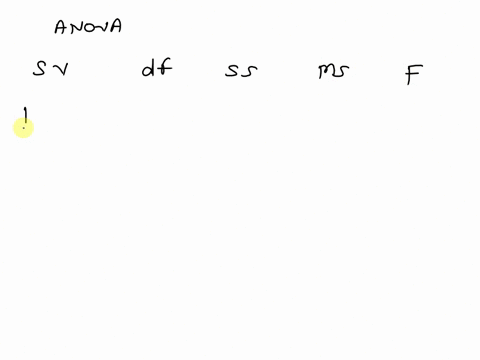 ANOVA
SV df SS MS F